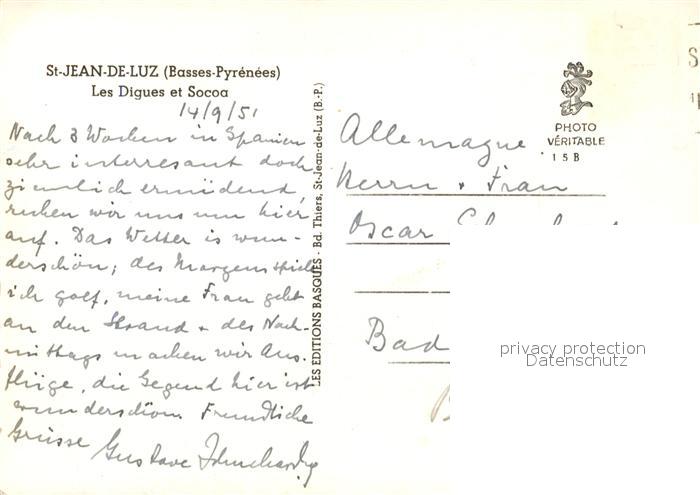 St-JEAN-DE-LUZ (Basses-Pyrénées)
Les Digues et Socoa
14/9/51
Nach 3 Wochen in Spanien
sehr interresant doch
ziemlich ermüdend,
ruhen wir uns nun hier
auf. Das Wetter is wun-
derschön; des Morgens spiele
ich golf, meine Frau geht
an den Strand + des Nach-
mittags machen wir Aus-
flüge, die Gegend hier ist
wunderschön. Freundliche
Grüsse
Gustave
LES EDITIONS BASQUES - Bd. Thiers, St-Jean-de-Luz (B.-P.)
PHOTO
VÉRITABLE
15B
Allemagne
Herrn + Frau
Oscar
Bad
privacy protection
Datenschutz